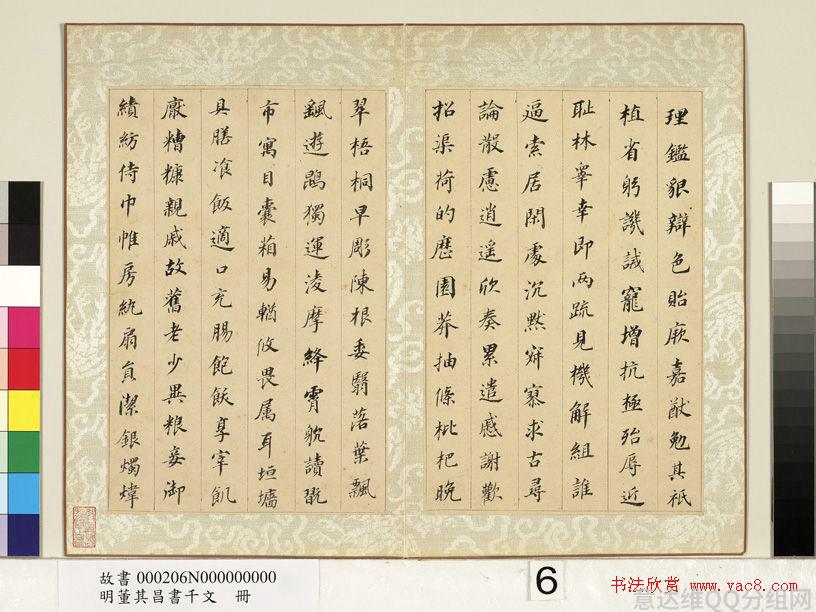 理鑑貌辯色貽厥嘉猷勉其祇
植省躬譏誡寵增抗極殆辱近
耻林睾幸即两踈見機解組誰
逼索居閑處沉默寂寥求古尋
論散慮逍遥欣奏累遣慼謝歡
招渠荷的歷園莽抽條枇杷晚
翠梧桐早彫陳根委翳落葉飄
颻遊鵾獨運凌摩絳霄躭讀翫
市寓目囊葙易輶攸畏属耳垣墻
具膳飡飯適口充腸飽飫享宰飢
厭糟糠親戚故舊老少異粮妾御
績紡侍巾帷房紈扇員潔銀燭煒
故書 000206N000000000
明董其昌書千文 冊
6
书法欣赏 www.yac8.com
意达维QQ分组网